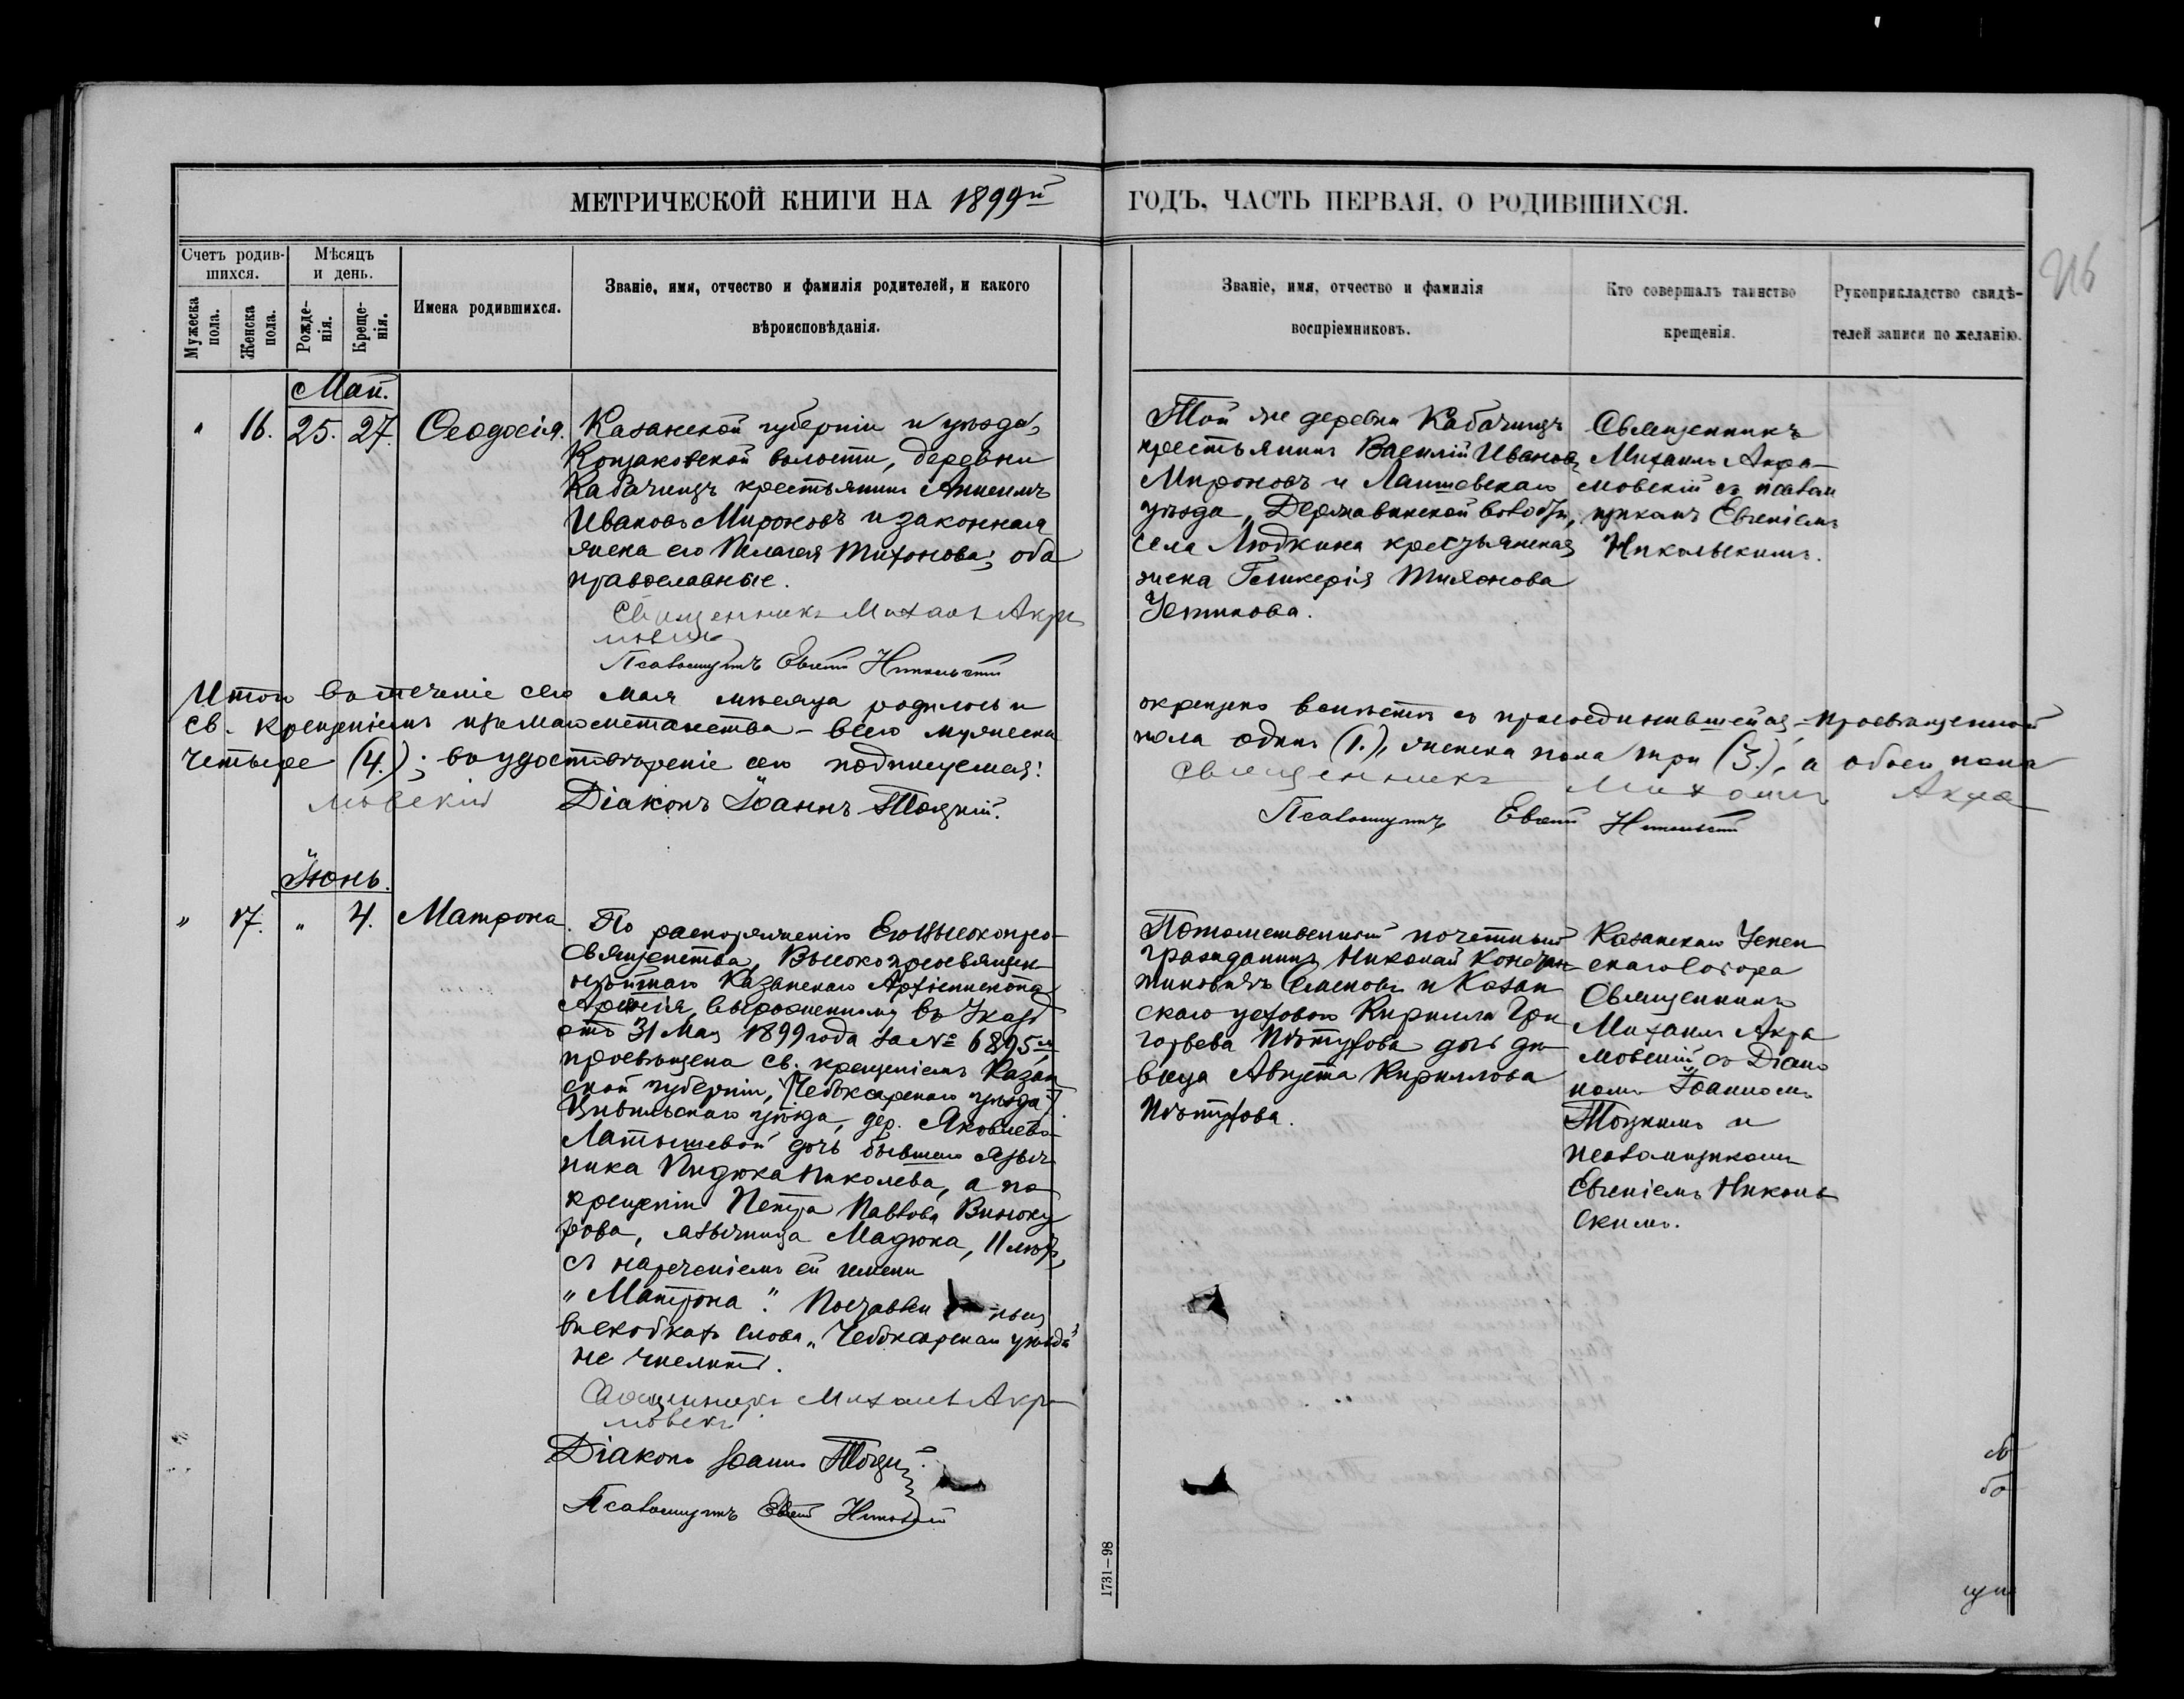 МЕТРИЧЕСКОЙ КНИГИ НА 1899й ГОДЪ, ЧАСТЬ ПЕРВАЯ, О РОДИВШИХСЯ.
Счетъ родив-
шихся.
Мужеска
пола.
Женска
пола.
Мѣсяцъ
и день.
Рожде-
нія.
Креще-
нія.
Имена родившихся.
Званіе, имя, отчество и фамилія родителей, и какого
вѣроисповѣданія.
Званіе, имя, отчество и фамилія
воспріемниковъ.
Кто совершалъ таинство
крещенія.
Рукоприкладство свидѣ-
телей записи по желанію.
Май.
" 16. 25. 27. Ѳеодосія.
Казанской губерніи и уѣзда,
Кощаковской волости, деревни
Кабачищъ крестьянинъ Анисимъ
Ивановъ Мироновъ и законная
жена его Пелагея Тихонова; оба
православные.
Священникъ Михаилъ Акра
мовскій
Псаломщикъ Евгеній Никольскій
Той же деревни Кабачищъ
крестьянинъ Василій Ивановъ
Мироновъ и Лаишевскаго
уѣзда, Державинской волости,
села Людкина крестьянская
жена Гликерія Тихонова
Устинова.
Священникъ
Михаилъ Акра-
мовскій съ псалом
щикомъ Евгеніемъ
Никольскимъ.
Итого въ теченіе сего мая мѣсяца родилось и окрещено вмѣстѣ съ присоединившейся-просвѣщенной
св. крещеніемъ изъ магометанства - всего мужеска пола одинъ (1.), женска пола три (3.), а обоего пола
четыре (4.); въ удостовѣреніе сего подписуемся: Священникъ Михаилъ Акра
мовскій Діаконъ Іоаннъ Троицкій. Псаломщикъ Евгеній Никольскій
Іюнь.
" 17. " 4. Матрона.
По распоряженію Его Высокопрео-
священства, Высокопреосвящен-
нѣйшаго Казанскаго Архіепископа
Арсенія, выраженному въ Указѣ
отъ 31 Мая 1899 года за № 6895м
просвѣщена св. крещеніемъ Казан
ской губерніи, (Чебоксарскаго уѣзда)
Цивильскаго уѣзда, дер. Яковлево-
Латышевой дочь бывшаго языч
ника Пидюка Николева, а по
крещеніи Петра Павлова Винокур
рова, язычница Мадюка, 11 лѣтъ,
съ нареченіемъ ей имени
"Матрона". Поставлен ныя
въ скобкахъ слова "Чебоксарскаго уѣзда"
не числить.
Священникъ Михаилъ Акра
мовскій
Діаконъ Іоаннъ Троицкій
Псаломщикъ Евгеній Никольскій
Потомственный почетный
гражданинъ Николай Констан
тиновичъ Семеновъ и Казан
скаго цехового Кирилла Гри
горьева Пѣтухова дочь дѣ
вица Августа Кириллова
Пѣтухова.
Казанскаго Успен
скаго Собора
Священникъ
Михаилъ Акра
мовскій съ Діако
номъ Іоанномъ
Троицкимъ и
псаломщикомъ
Евгеніемъ Николь
скимъ.
1731—98